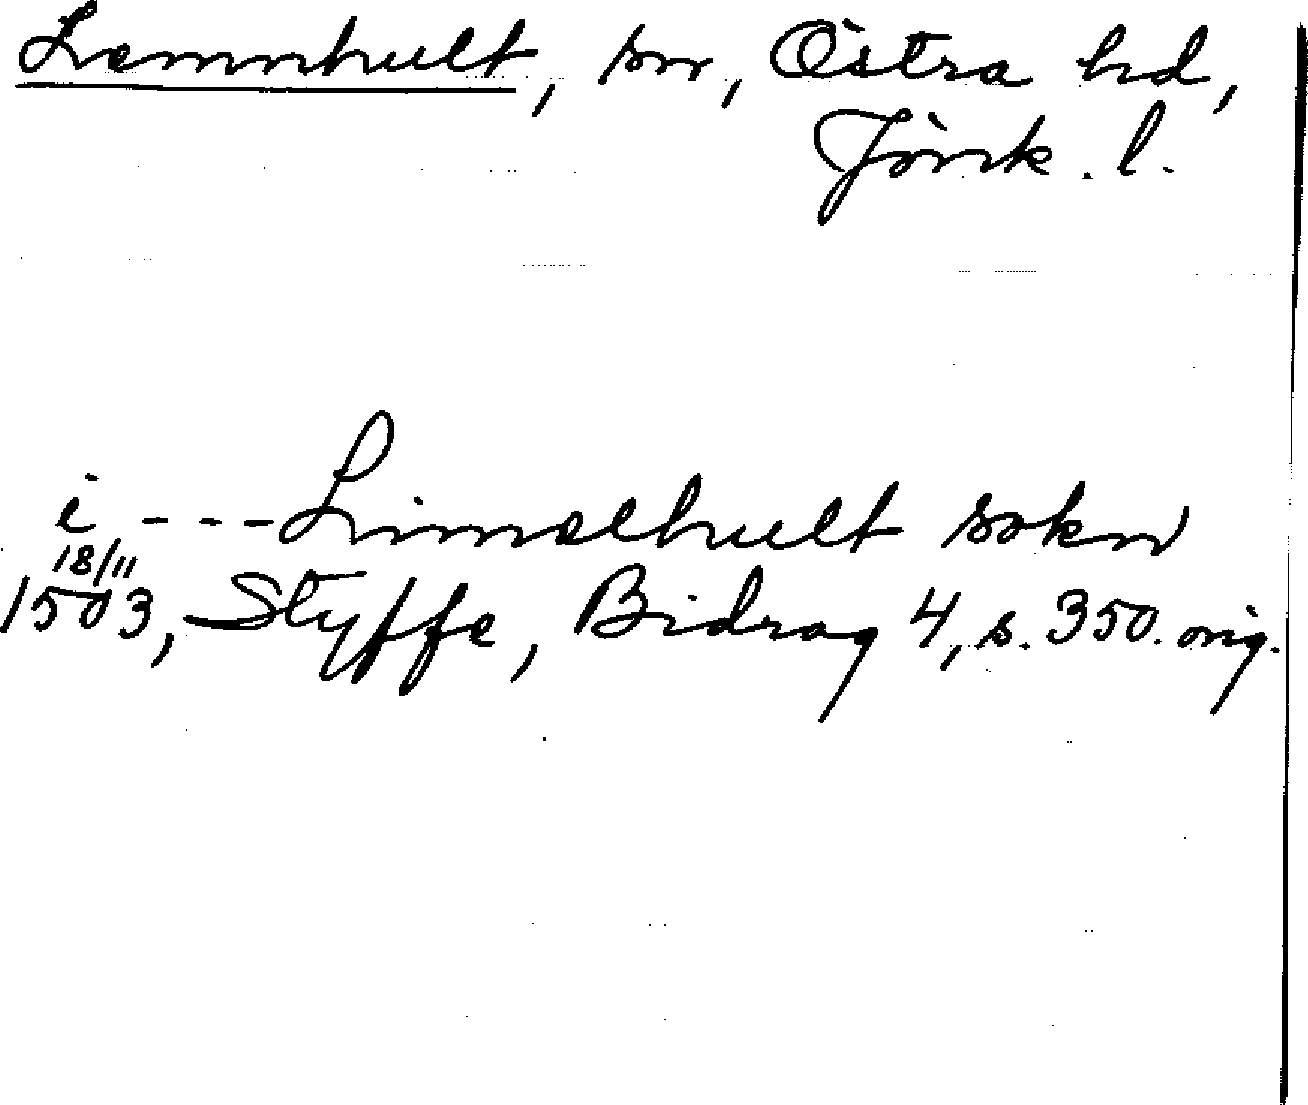 Lemnhult, sn, Östra hd,
Jönk. l.
i --- Limalhult sokn
18/11
1503, Styffe, Bidrag 4, s. 350. orig.